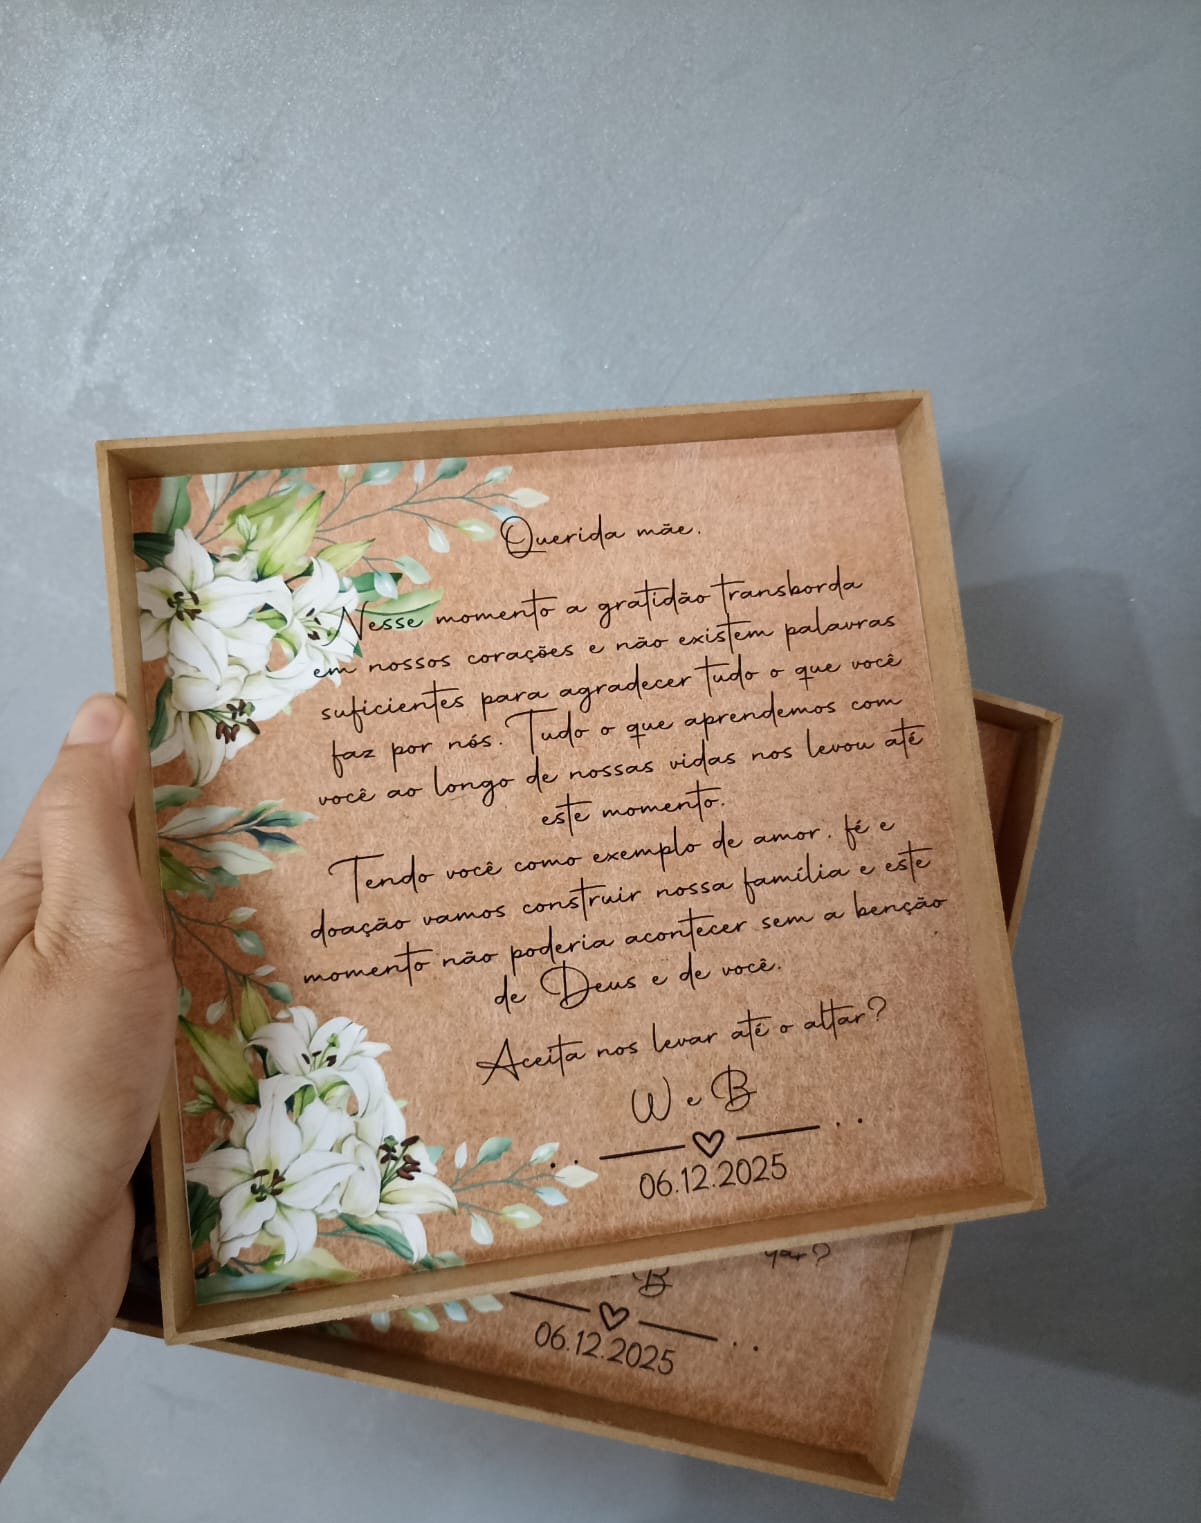 Querida mãe,
Nesse momento a gratidão transborda
em nossos corações e não existem palavras
suficientes para agradecer tudo o que você
faz por nós. Tudo o que aprendemos com
você ao longo de nossas vidas nos levou até
este momento.
Tendo você como exemplo de amor, fé e
doação vamos construir nossa família e este
momento não poderia acontecer sem a benção
de Deus e de você.
Aceita nos levar até o altar?
W e B
06.12.2025
B
06.12.2025